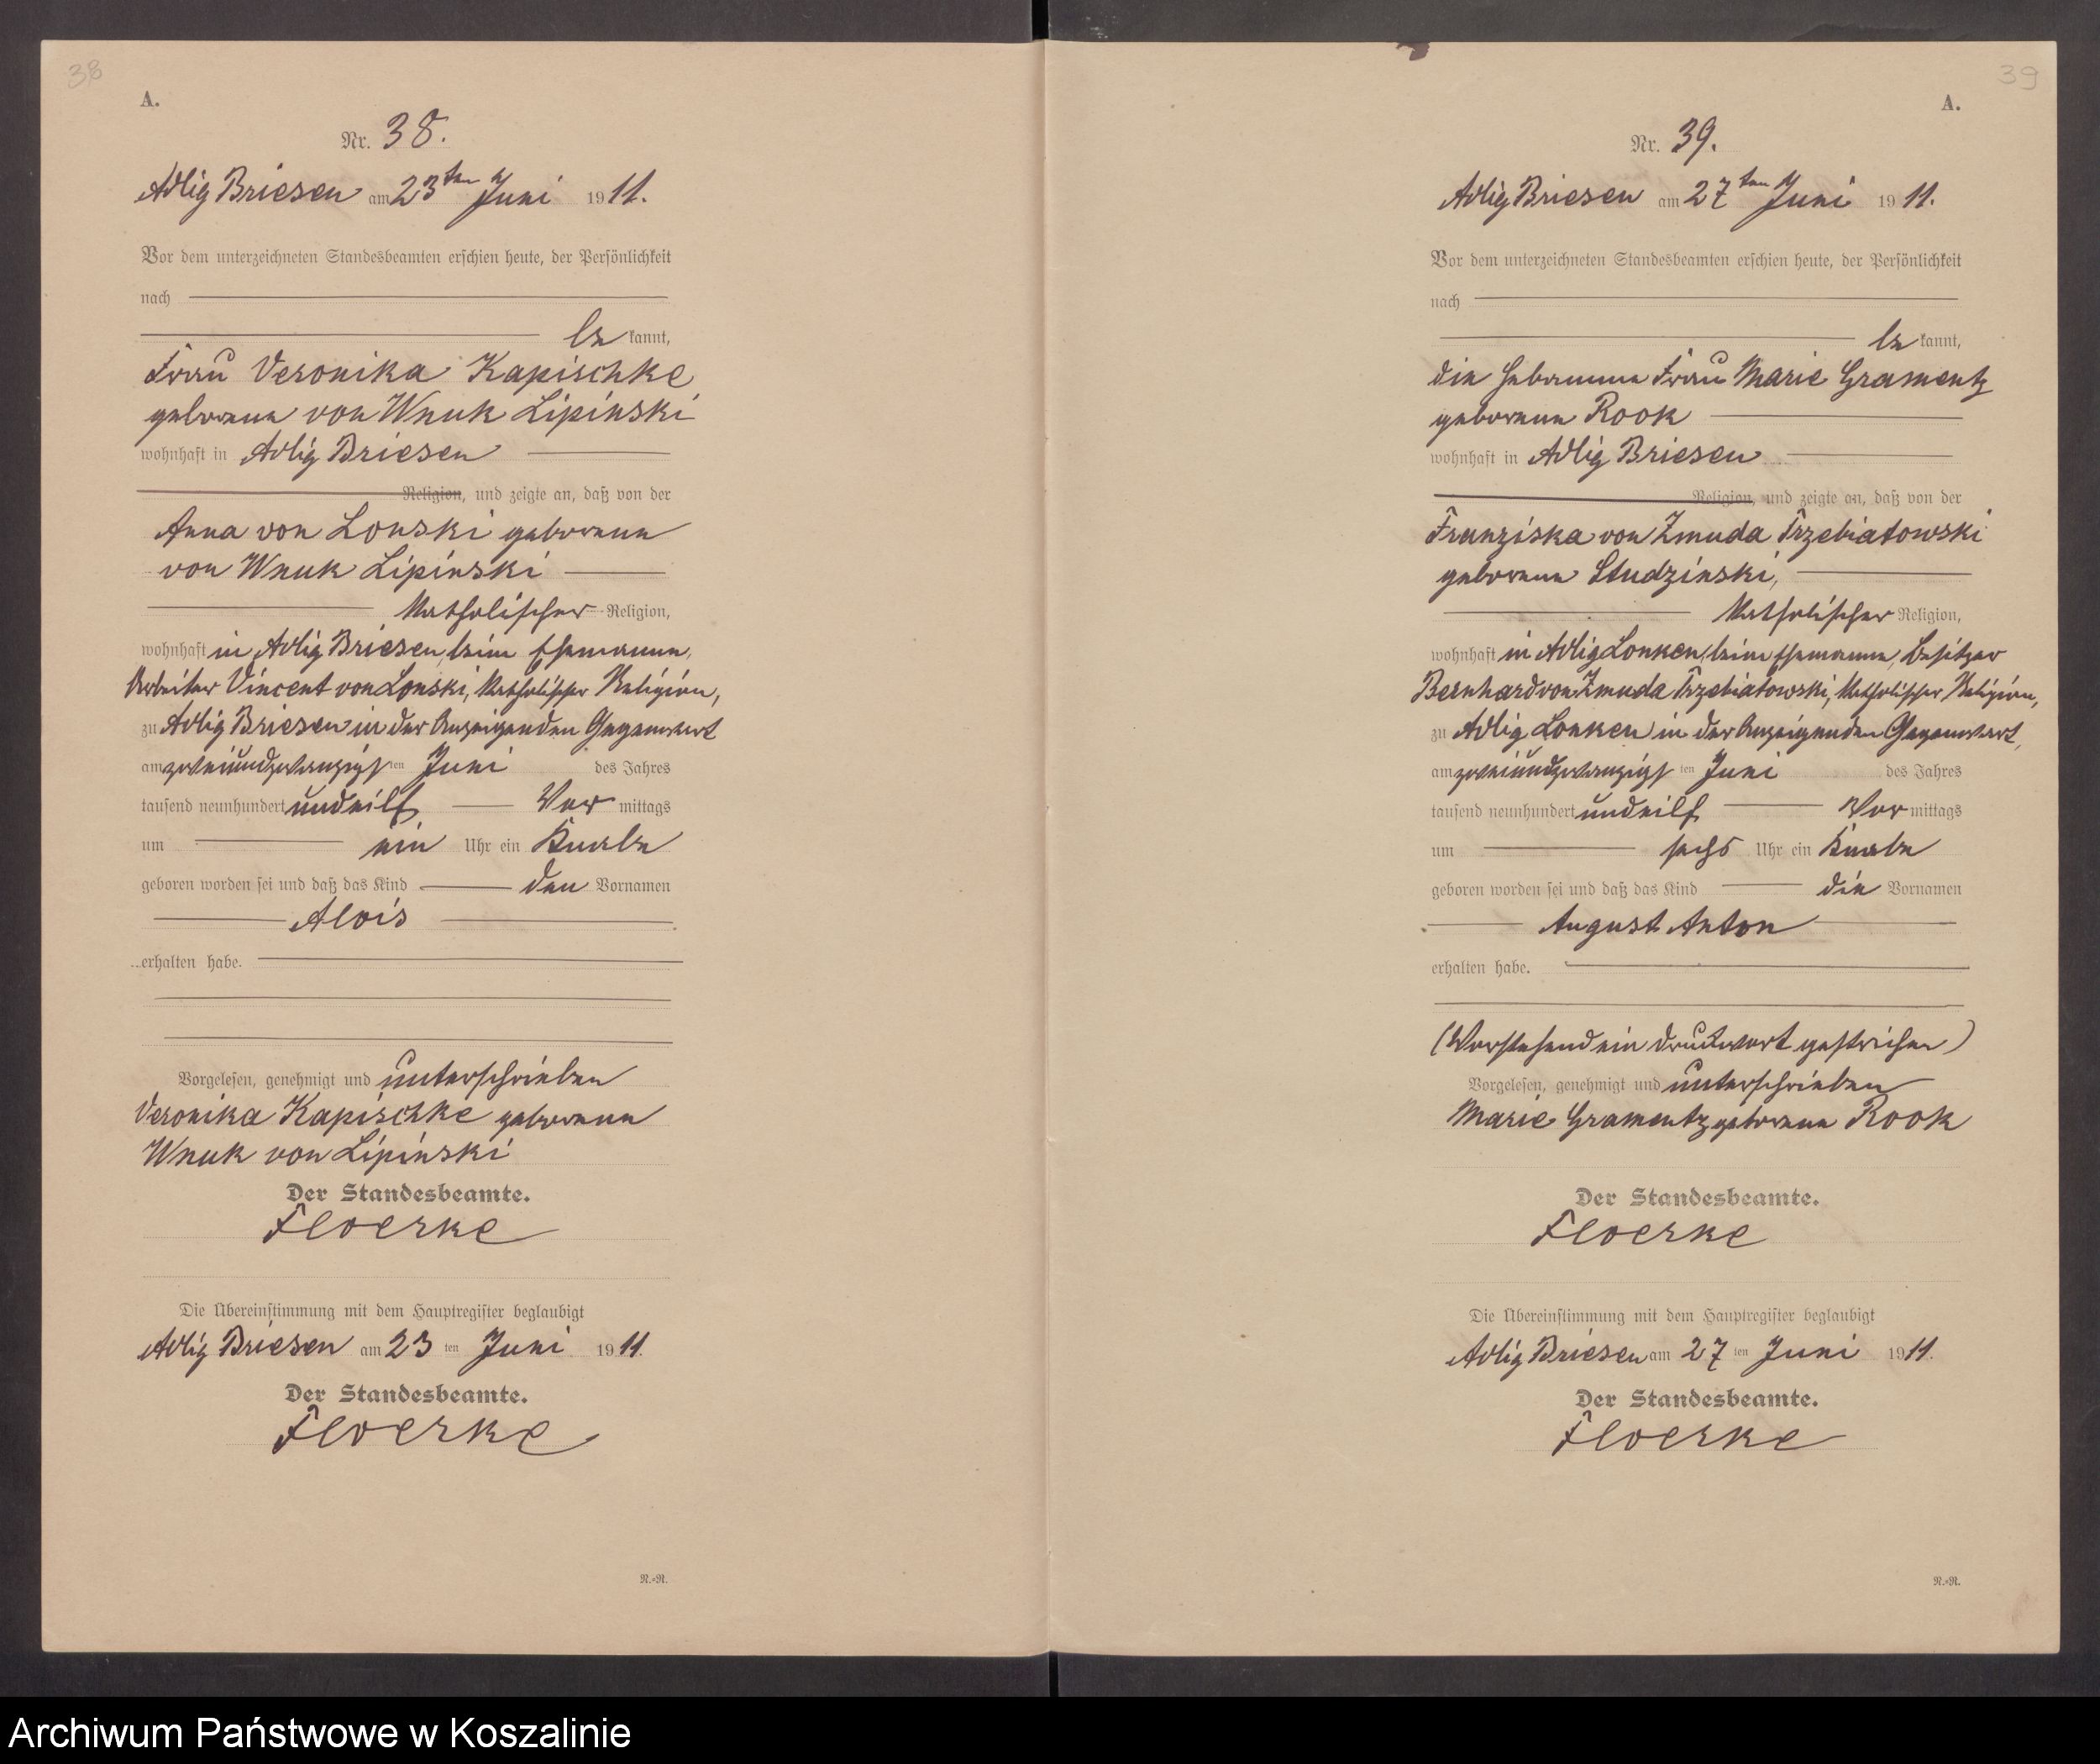 38
A.
Nr. 38.
Adlig Briesen am 23ten Juni 1911.
Vor dem unterzeichneten Standesbeamten erschien heute, der Persönlichkeit
nach
be kannt,
Frau Veronika Kapischke
geborene von Wnuk Lipinski
wohnhaft in Adlig Briesen
Religion, und zeigte an, daß von der
Anna von Lonski geborene
von Wnuk Lipinski
katholischer Religion,
wohnhaft in Adlig Briesen, beim Ehemanne,
Arbeiter Vincent von Lonski, katholischer Religion,
zu Adlig Briesen in der Anzeigenden Gegenwart
am zweiundzwanzigsten Juni des Jahres
tausend neunhundert und eilf Vormittags
um ein Uhr ein Knabe
geboren worden sei und daß das Kind den Vornamen
Alois
erhalten habe.
Vorgelesen, genehmigt und unterschrieben
Veronika Kapischke geborene
Wnuk von Lipinski
Der Standesbeamte.
Floerke
Die Übereinstimmung mit dem Hauptregister beglaubigt
Adlig Briesen am 23ten Juni 1911.
Der Standesbeamte.
Floerke
N.=N.
39
A.
Nr. 39.
Adlig Briesen am 27ten Juni 1911.
Vor dem unterzeichneten Standesbeamten erschien heute, der Persönlichkeit
nach
be kannt,
die Hebamme Frau Marie Gramentz
geborene Rook
wohnhaft in Adlig Briesen
Religion, und zeigte an, daß von der
Franziska von Zmuda Trzebiatowski
geborene Studzinski,
katholischer Religion,
wohnhaft in Adlig Lonken, beim Ehemanne, Besitzer
Bernhard von Zmuda Trzebiatowski, katholischer Religion,
zu Adlig Lonken in der Anzeigenden Gegenwart,
am zweiundzwanzigsten Juni des Jahres
tausend neunhundert und eilf Vormittags
um sechs Uhr ein Knabe
geboren worden sei und daß das Kind die Vornamen
August Anton
erhalten habe.
(Vorstehend ein Druckwort gestrichen)
Vorgelesen, genehmigt und unterschrieben
Marie Gramentz geborene Rook
Der Standesbeamte.
Floerke
Die Übereinstimmung mit dem Hauptregister beglaubigt
Adlig Briesen am 27ten Juni 1911.
Der Standesbeamte.
Floerke
N.=N.
Archiwum Państwowe w Koszalinie